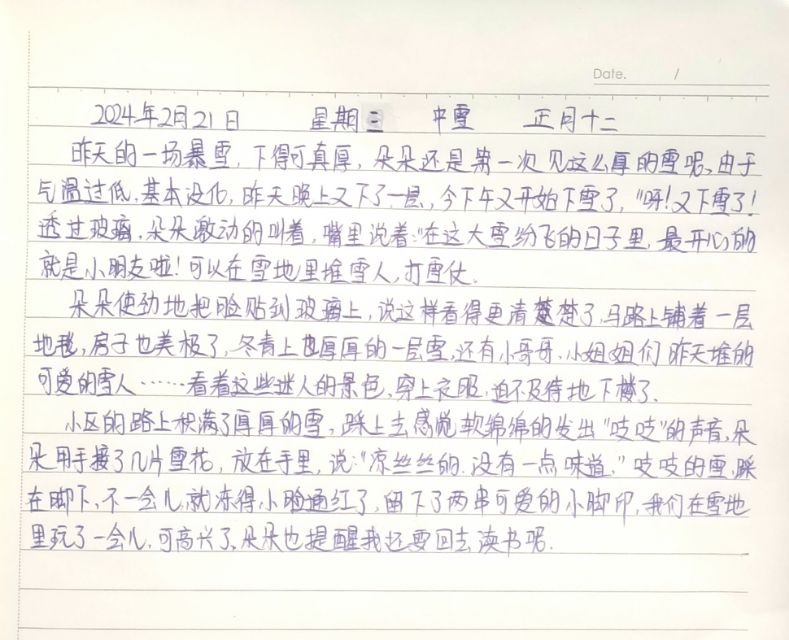 Date. /
2024年2月21日 星期三 中雪 正月十二
昨天的一场暴雪，下得可真厚，朵朵还是第一次见这么厚的雪呢、由于
气温过低，基本没化，昨天晚上又下了一层，今下午又开始下雪了，“呀！又下雪了！
透过玻璃，朵朵激动的叫着，嘴里说着：“在这大雪纷飞的日子里，最开心的
就是小朋友啦！可以在雪地里堆雪人，打雪仗．
朵朵使劲地把脸贴到玻璃上，说这样看得更清楚楚了，马路上铺着一层
地毯，房子也美极了，冬青上也厚厚的一层雪，还有小哥哥．小姐姐们昨天堆的
可爱的雪人……看着这些迷人的景色，穿上衣服，迫不及待地下楼了．
小区的路上积满了厚厚的雪，踩上去感觉软绵绵的发出“吱吱”的声音，朵
朵用手接了几片雪花，放在手里，说：“凉丝丝的．没有一点味道．”吱吱的雪，踩
在脚下，不一会儿，就冻得小脸通红了，留下了两串可爱的小脚印，我们在雪地
里玩了一会儿，可高兴了、朵朵也提醒我还要回去读书呢．